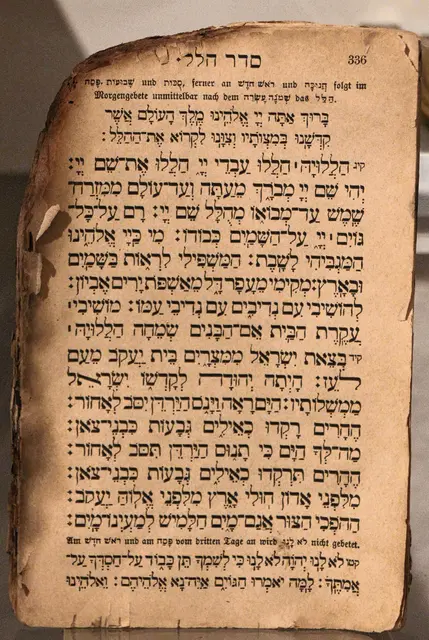 סדר הלל. 336
פֶּסַח, שָׁבוּעוֹת, סֻכּוֹת und, ferner an רֹאשׁ חֹדֶשׁ und חֲנוּכָּה folgt im
Morgengebete unmittelbar nach dem שְׁמֹנֶה עֶשְׂרֵה das הַלֵּל.
בָּרוּךְ אַתָּה יְיָ אֱלֹהֵינוּ מֶלֶךְ הָעוֹלָם אֲשֶׁר
קִדְּשָׁנוּ בְּמִצְוֹתָיו וְצִוָּנוּ לִקְרוֹא אֶת־הַהַלֵּל:
קיג הַלְלוּיָהּ׀ הַלְלוּ עַבְדֵי יְיָ הַלְלוּ אֶת־שֵׁם יְיָ:
יְהִי שֵׁם יְיָ מְבֹרָךְ מֵעַתָּה וְעַד־עוֹלָם מִמִּזְרַח־
שֶׁמֶשׁ עַד־מְבוֹאוֹ מְהֻלָּל שֵׁם יְיָ: רָם עַל־כָּל־
גּוֹיִם׀ יְיָ עַל־הַשָּׁמַיִם כְּבוֹדוֹ: מִי כַּיְיָ אֱלֹהֵינוּ
הַמַּגְבִּיהִי לָשָׁבֶת: הַמַּשְׁפִּילִי לִרְאוֹת בַּשָּׁמַיִם
וּבָאָרֶץ: מְקִימִי מֵעָפָר דָּל מֵאַשְׁפֹּת יָרִים אֶבְיוֹן:
לְהוֹשִׁיבִי עִם־נְדִיבִים עִם נְדִיבֵי עַמּוֹ: מוֹשִׁיבִי׀
עֲקֶרֶת הַבַּיִת אֵם־הַבָּנִים שְׂמֵחָה הַלְלוּיָהּ׃
קיד בְּצֵאת יִשְׂרָאֵל מִמִּצְרָיִם בֵּית יַעֲקֹב מֵעַם
לֹעֵז: הָיְתָה יְהוּדָה לְקָדְשׁוֹ יִשְׂרָאֵל
מַמְשְׁלוֹתָיו: הַיָּם רָאָה וַיָּנֹס הַיַּרְדֵּן יִסֹּב לְאָחוֹר:
הֶהָרִים רָקְדוּ כְאֵילִים גְּבָעוֹת כִּבְנֵי־צֹאן:
מַה־לְּךָ הַיָּם כִּי תָנוּס הַיַּרְדֵּן תִּסֹּב לְאָחוֹר:
הֶהָרִים תִּרְקְדוּ כְאֵילִים גְּבָעוֹת כִּבְנֵי־צֹאן:
מִלִּפְנֵי אָדוֹן חוּלִי אָרֶץ מִלִּפְנֵי אֱלוֹהַּ יַעֲקֹב:
הַהֹפְכִי הַצּוּר אֲגַם־מָיִם חַלָּמִישׁ לְמַעְיְנוֹ־מָיִם:
Am רֹאשׁ חֹדֶשׁ und am פֶּסַח vom dritten Tage an wird לֹא לָנוּ nicht gebetet.
קטו לֹא לָנוּ יְהוָֹה לֹא לָנוּ כִּי לְשִׁמְךָ תֵּן כָּבוֹד עַל־חַסְדְּךָ עַל־
אֲמִתֶּךָ: לָמָּה יֹאמְרוּ הַגּוֹיִם אַיֵּה־נָא אֱלֹהֵיהֶם: וֵאלֹהֵינוּ